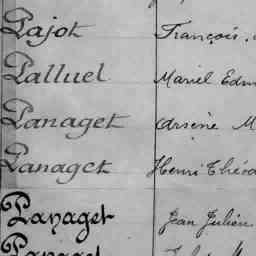 Pajot François.
Palluel Mariel Edm
Panaget Arsène M
Panaget Henri Théod
Panaget Jean Julien
Panaget